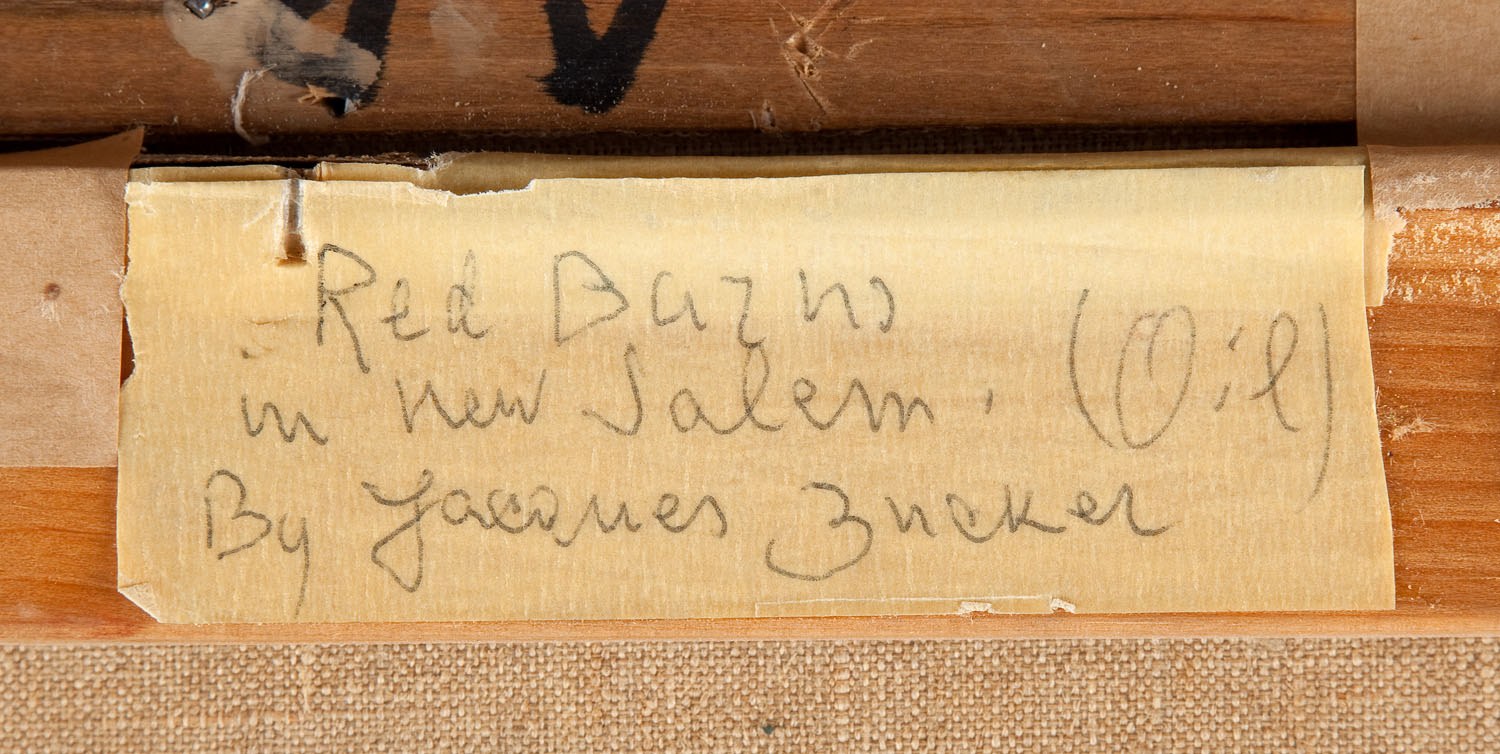 Red Barns
in new Salem. (Oil)
By Jacques Zucker